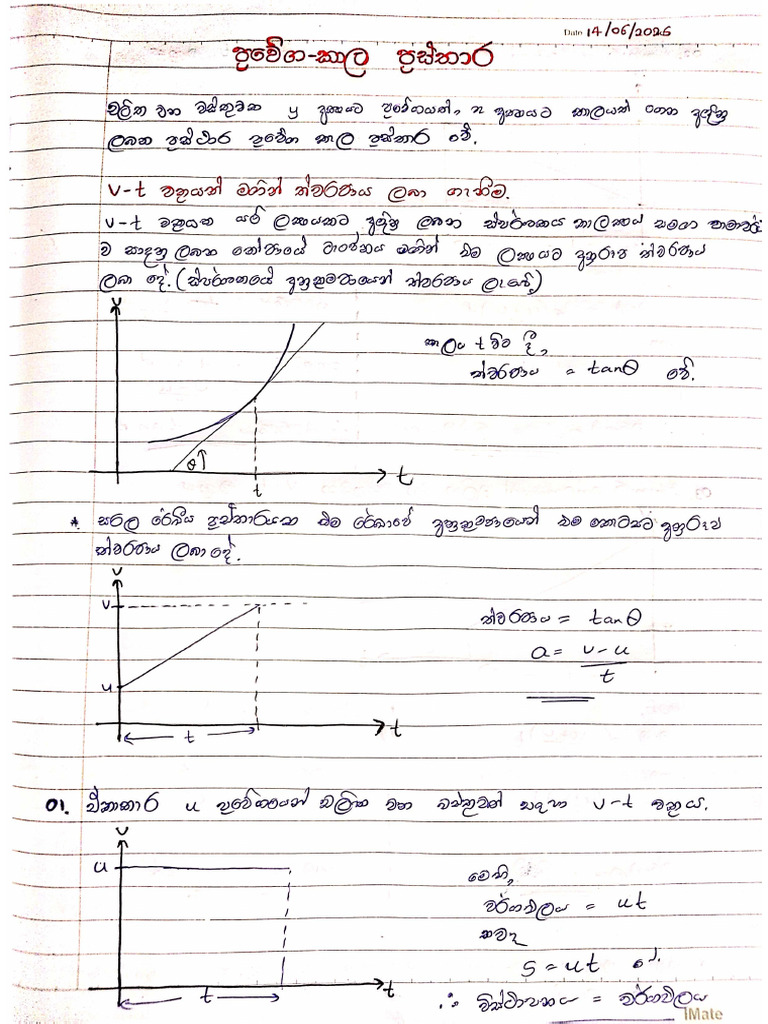 Date 14/06/2025
ප්‍රවේග-කාල ප්‍රස්තාර
චලිත වන වස්තුවක y අක්ෂයට ප්‍රවේගයත්, x අක්ෂයට කාලයත් ගෙන අඳිනු
ලබන ප්‍රස්ථාර ප්‍රවේග කාල ප්‍රස්තාර වේ.
v-t වක්‍රයක් මගින් ත්වරණය ලබා ගැනීම.
v-t වක්‍රයක යම් ලක්ෂයකට අඳිනු ලබන ස්පර්ශකය කාලක්ෂය සමග
ව සාදනු ලබන කෝණයේ ටැංජනය මගින් එම ලක්ෂයට අනුරූප ත්වරණය
ලබා දේ. (ස්පර්ශකයේ අනුක්‍රමණයෙන් ත්වරණය ලැබේ)
v
කාලය t විට දී,
ත්වරණය = tanθ වේ.
θ
t
t
* සරල රේඛීය ප්‍රස්තාරයක එම රේඛාවේ අනුක්‍රමණයෙන් එම කොටසට අනුරූව
ත්වරණය ලබා දේ.
v
v
ත්වරණය = tanθ
a = v-u
t
u
t
t
01. ඒකාකාර u ප්‍රවේගයෙන් චලිත වන වස්තුවක් සඳහා v-t වක්‍රය.
v
u
මෙහි,
වර්ගඵලය = ut
තවද
s = ut වේ.
t
t
∴ විස්ථාපනය = වර්ගඵලය
iMate